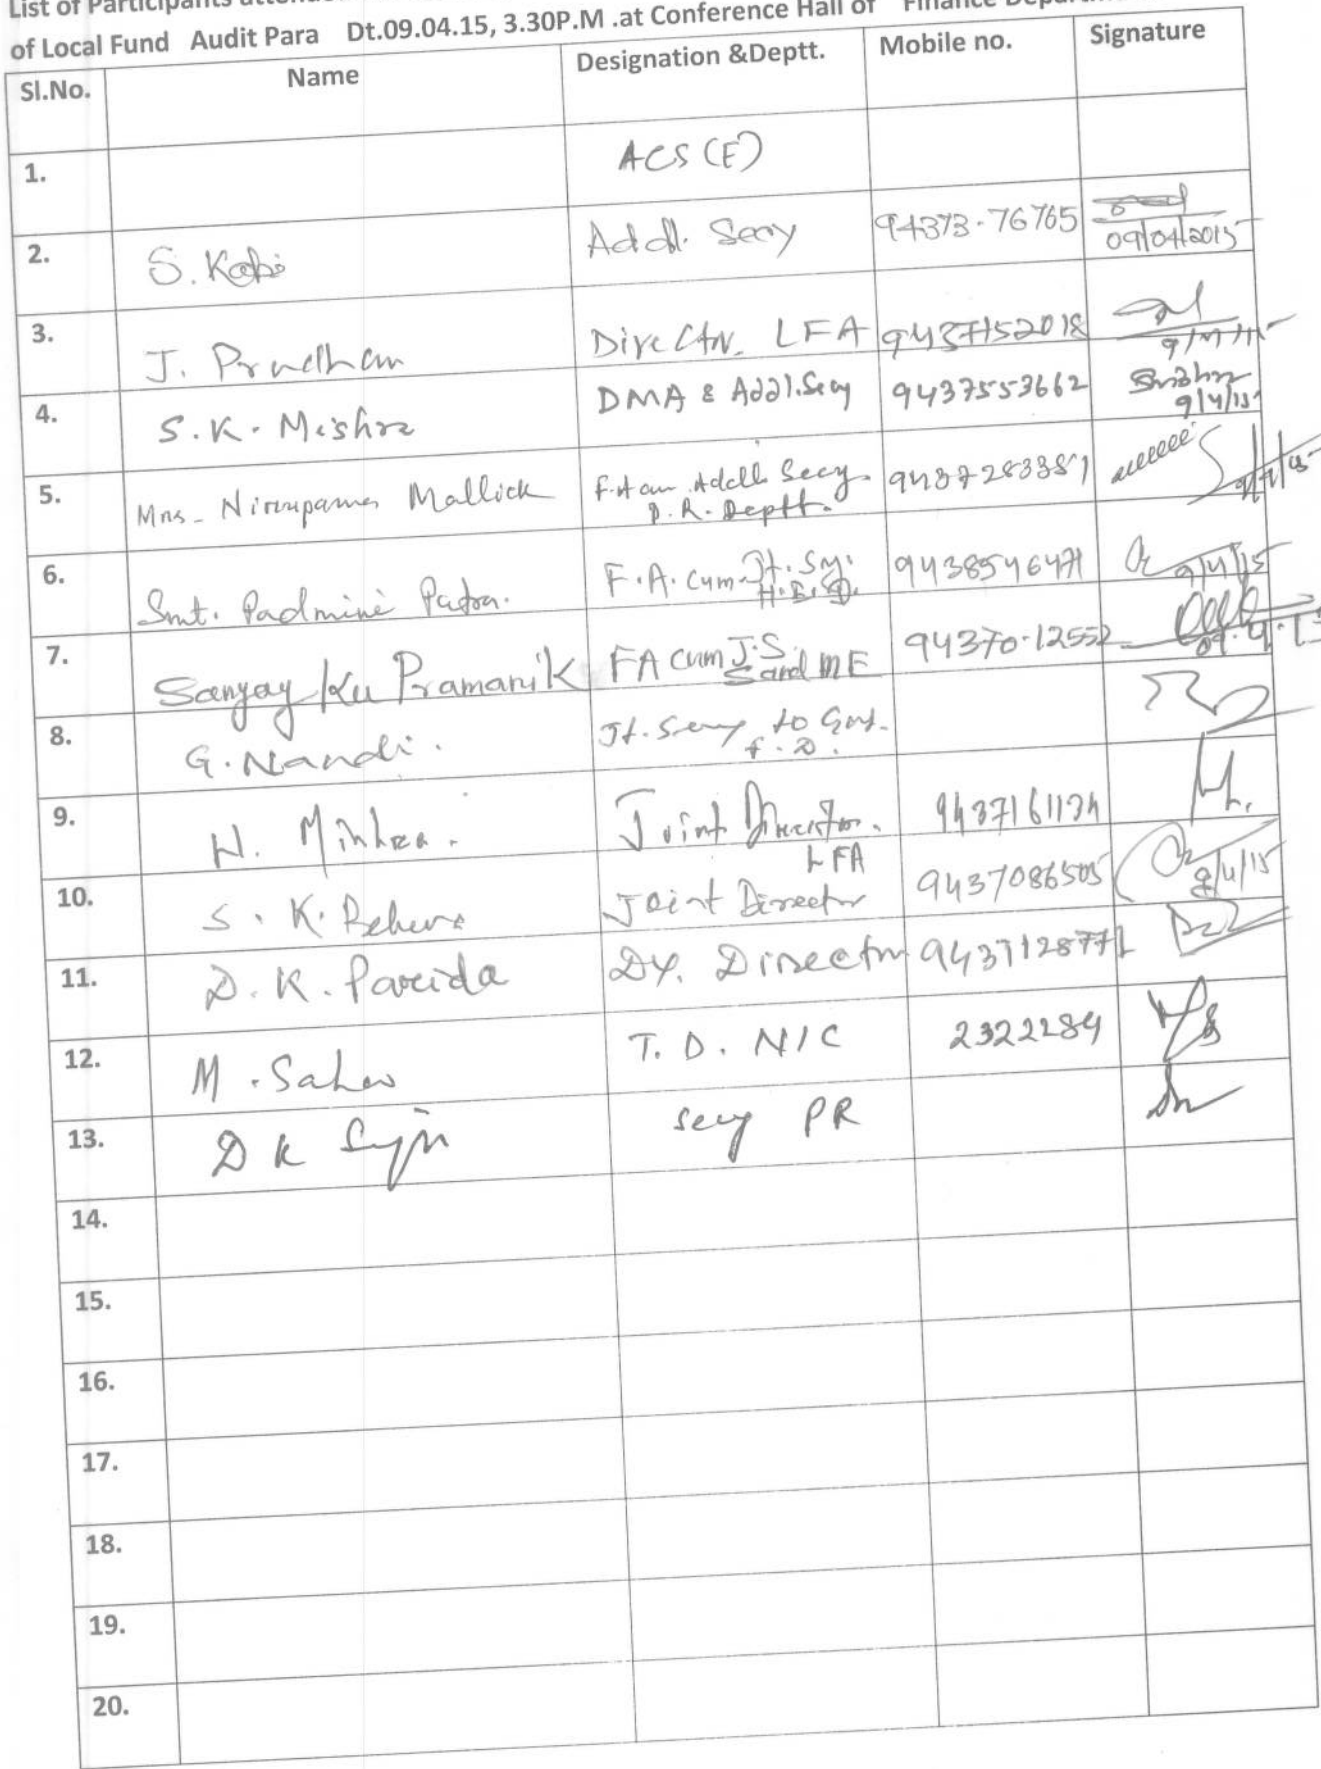 List of Participants
of Local Fund Audit Para Dt.09.04.15, 3.30P.M .at Conference Hall of Finance
Sl.No. Name Designation &Deptt. Mobile no. Signature
1. ACS (F)
2. S. Kabi Addl. Secy 94373-76765 09/04/2015
3. J. Pradhan Director, LFA 9437152018 9/4/15
4. S.K. Mishra DMA & Addl. Secy 9437553662 9/4/15
5. Mrs. Nirupama Mallick F.A cum Addl Secy 9437283381
P.R. Deptt.
6. Smt. Padmini Patra. F.A. cum Jt. Sy. 9438546471 9/4/15
H.E.D.
7. Sanjay Ku Pramanik FA cum J.S. 94370-12552
S and ME
8. G. Nandi. Jt. Secy to Govt.
F.D.
9. Joint Director. 9437161134
LFA
10. S. K. Behera Joint Director 9437086505 9/4/15
11. D. K. Parida Dy. Director 9437128771
12. M. Sahoo T. D. NIC 2322284
13. D K Secy PR
14.
15.
16.
17.
18.
19.
20.